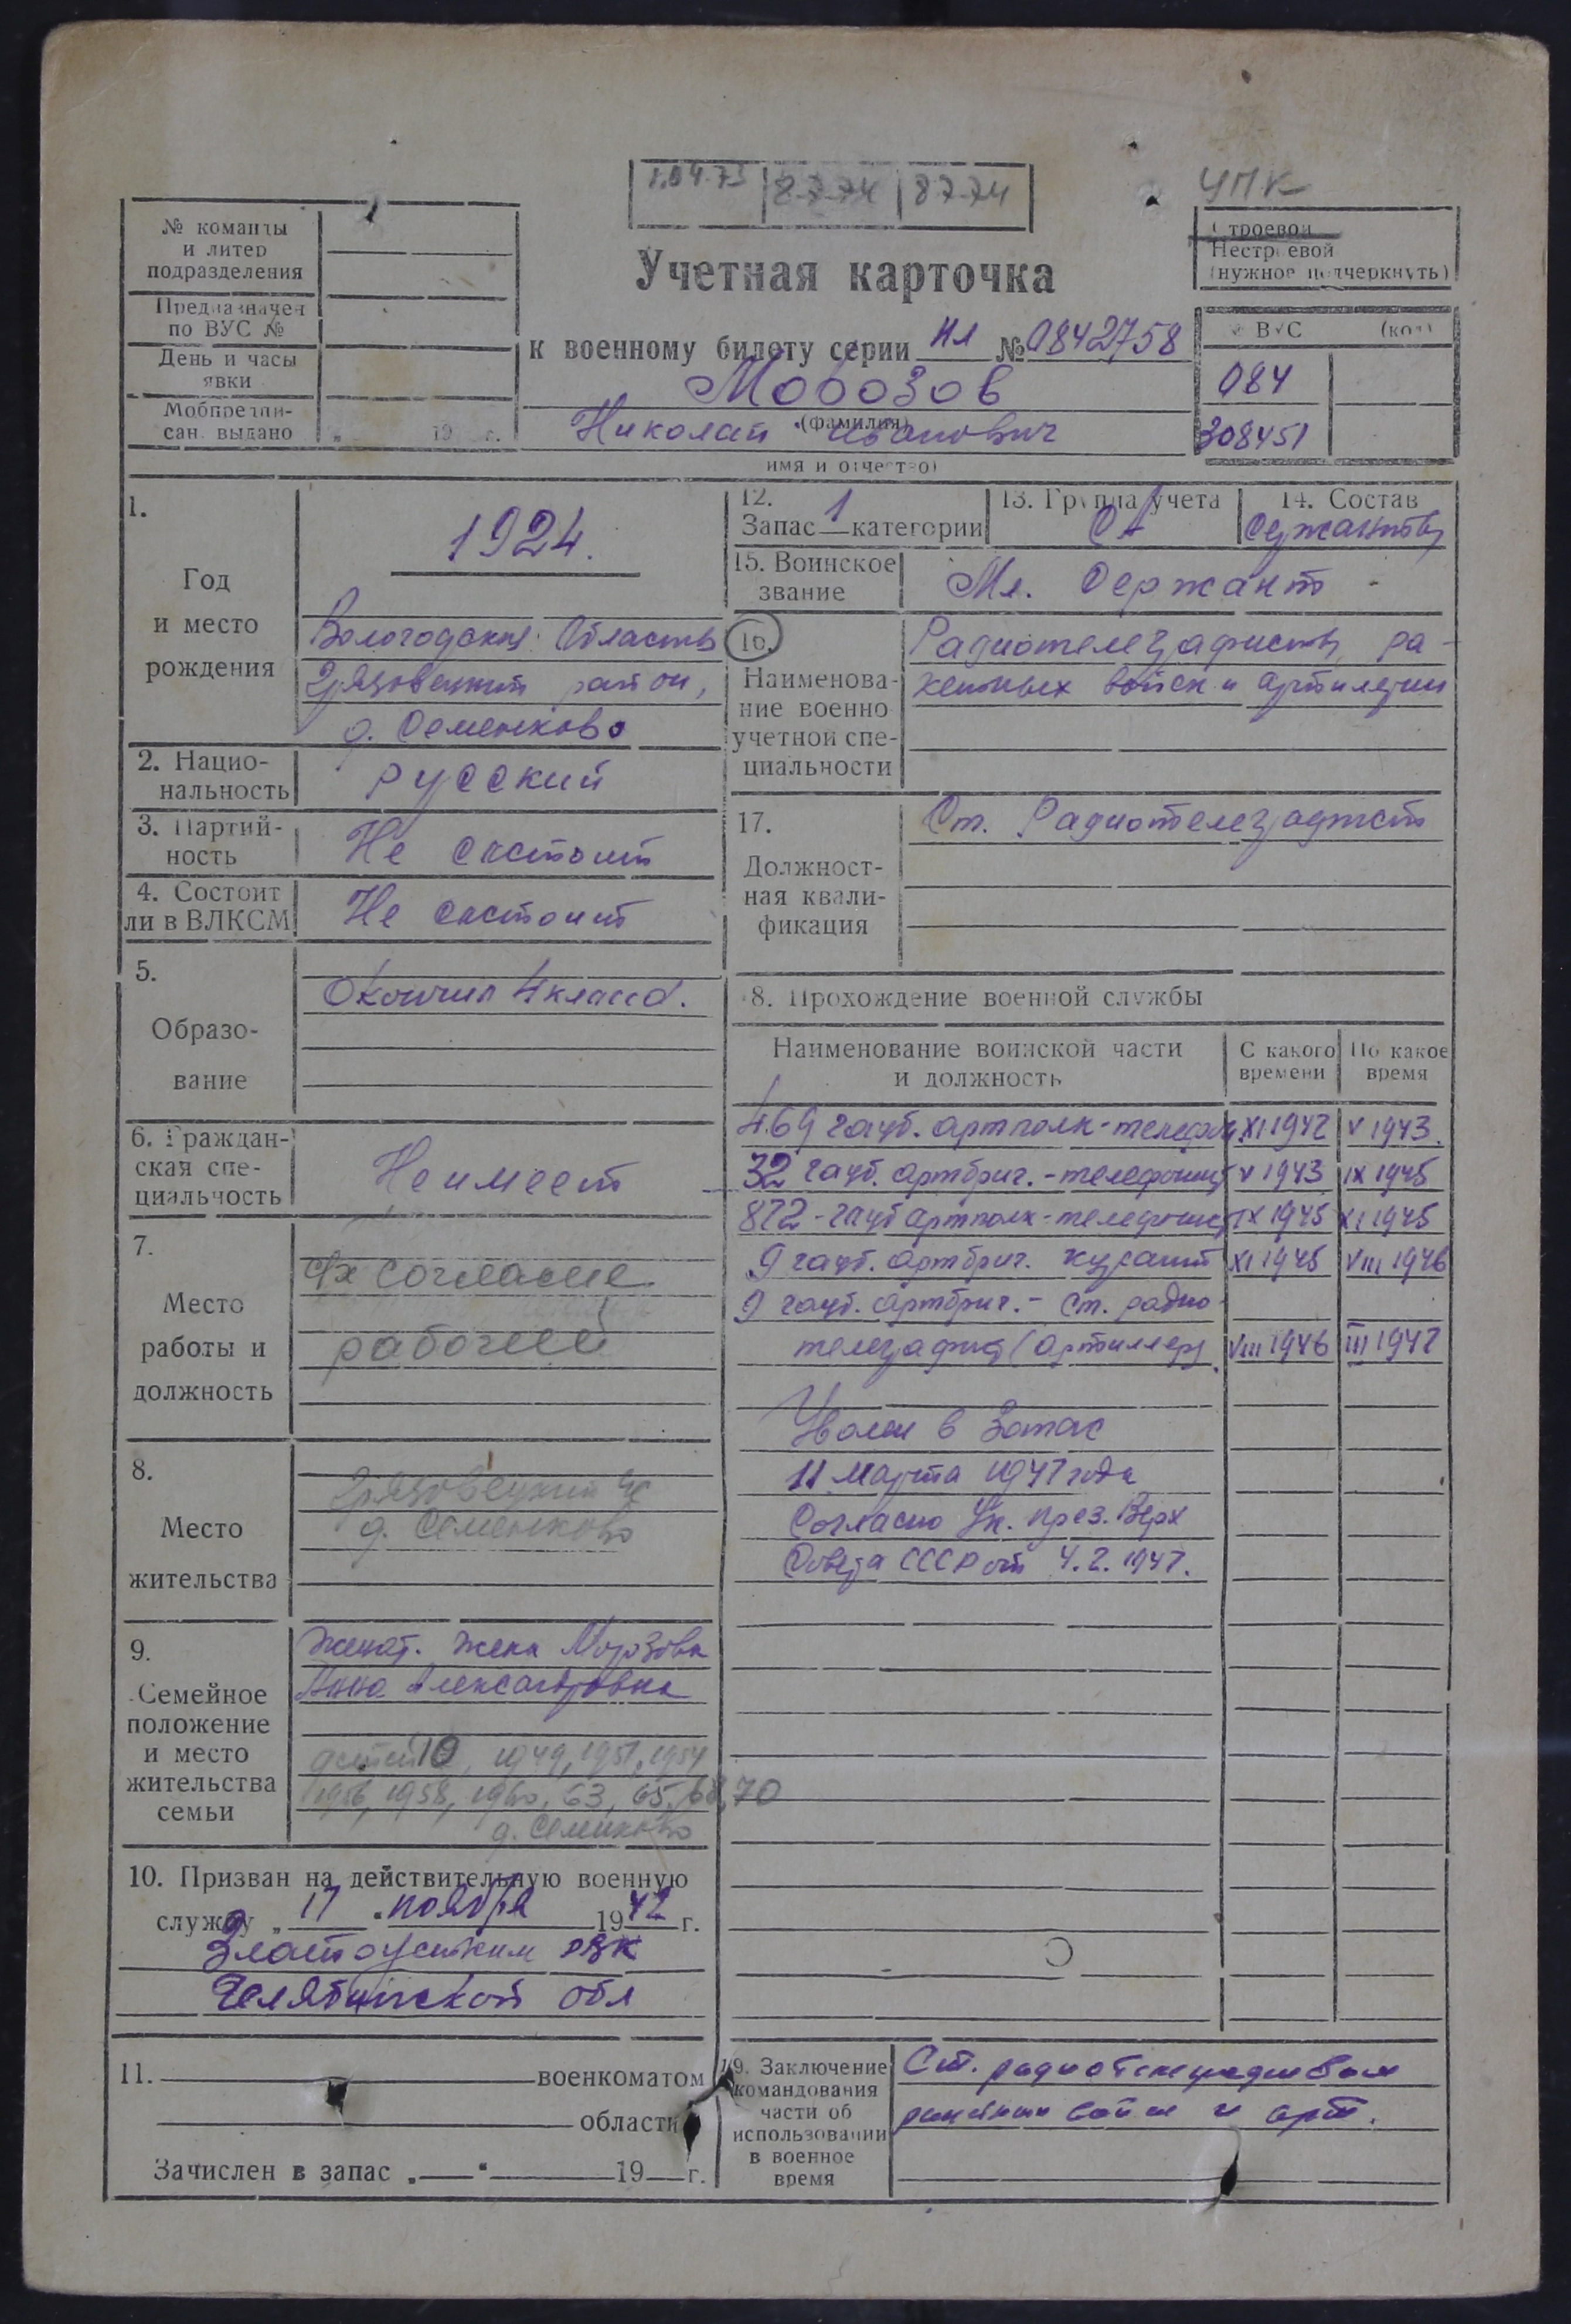 1.04.73 8-7-74 8774
УПК
№ команды
и литер
подразделения
Предназначен
по ВУС №
День и часы
явки
Мобпредпи-
сан. выдано „ 19 г.
Учетная карточка
к военному билету серии НЛ № 0842758
Морозов
(фамилия)
Николай Иванович
имя и отчество)
Строевой
Нестроевой
(нужное подчеркнуть)
№ ВУС (код)
084
308451
1.
Год
и место
рождения
1924.
Вологодская Область
Грязовецкий район,
д. Семенково
2. Нацио-
нальность
русский
3. Партий-
ность
Не состоит
4. Состоит
ли в ВЛКСМ
Не состоит
5.
Образо-
вание
Окончил 4 класса.
6. Граждан-
ская спе-
циальность
Не имеет
7.
Место
работы и
должность
с/х согласие
рабочий
8.
Место
жительства
Грязовецкий
д. Семенково
9.
Семейное
положение
и место
жительства
семьи
Женат. Жена Морозова
Анна Александровна
детей 10, 1949, 1951, 1954
1956, 1958, 1960, 63, 65, 68, 70
д. Семенково
10. Призван на действительную военную
службу „ 17 " ноября 1942 г.
Златоустким РВК
Челябинской обл
11. военкоматом
области
Зачислен в запас „ " 19 г.
12.
Запас 1 категории
13. Группа учета
СА
14. Состав
Сержантов
15. Воинское
звание
Мл. Сержант
16.
Наименова-
ние военно
учетной спе-
циальности
Радиотелеграфисты ра-
кетных войск и артилерии
17.
Должност-
ная квали-
фикация
Ст. Радиотелеграфист
18. Прохождение военной службы
Наименование воинской части
и должность
С какого
времени
По какое
время
469 гауб. артполк - телефон XI 1942 V 1943.
32 гауб. артбриг. - телефонист V 1943 IX 1945
872 - гауб артполк - телефонист IX 1945 XI 1945
9 гауб. артбриг. курсант XI 1945 VIII 1946
9 гауб. артбриг. - Ст. радио-
телеграфист (артиллер) VIII 1946 III 1947
Уволен в Запас
11 Марта 1947 года
Согласно Ук. През. Верх
Совета СССР от 4.2.1947.
19. Заключение
командования
части об
использовании
в военное
время
Ст. радиотелеграфистом
ракетных войск и арт.